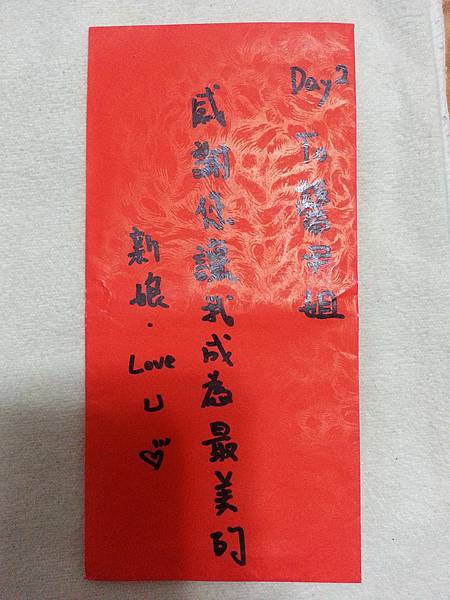 Day2 To 子姐
感謝您讓我成為最美的
新娘. Love U ♡